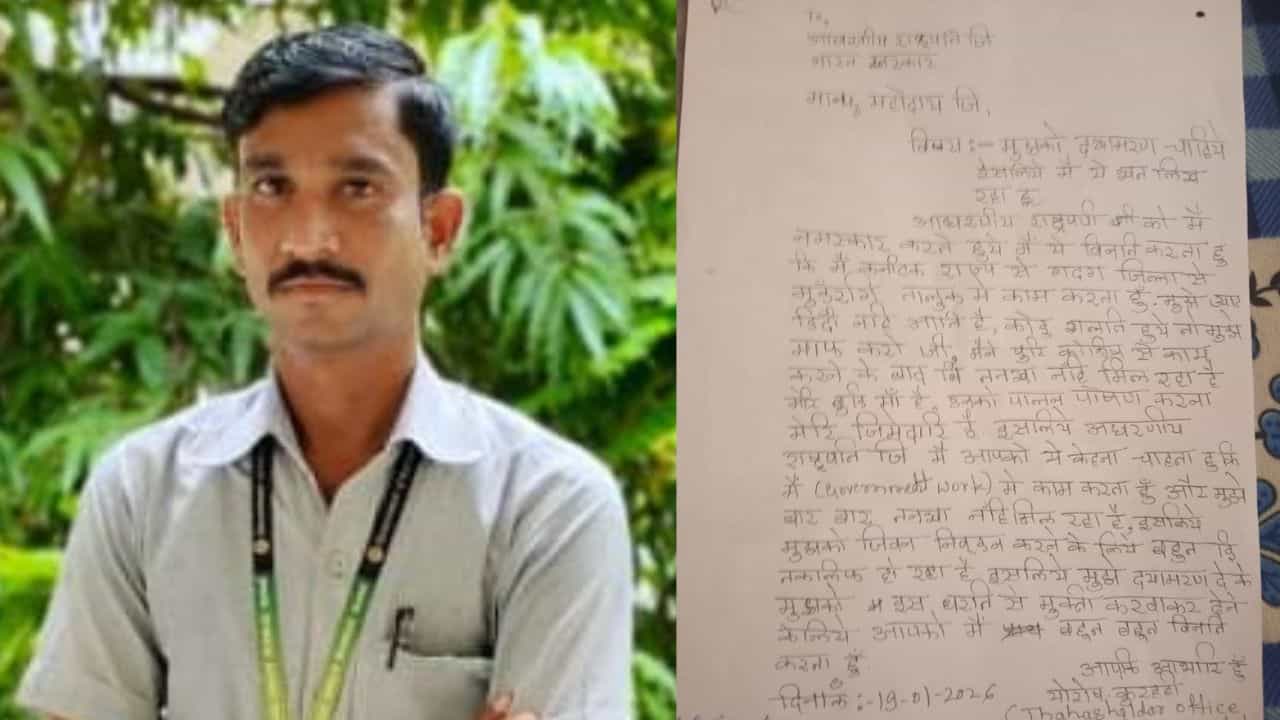 To,
आदरणीय राष्ट्रपति जि
भारत सरकार
मान्य, महोदाय जि,
विषय :- मुझको दयामरण चाहिये
इसलिये मै ये खत लिख
रहा हू
आधरणीय राष्ट्रपती जी को मै
नमस्कार करते हुये मै ये विनति करता हु
कि मै कर्नाटक राज्य से गदग जिल्ला से
तालुक मे काम करता हूँ. मुझे
हिंदी नहि आति है, कोइ गलति हुये तो मुझे
माफ करो जी, मैने पुरि कोशिश से काम
करने के बाद बि तनख्वा नहि मिल रहा है
मेरि बुडि माँ है, इनका पालन पोषण करना
मेरि जिमेदारि है इसलिये आधरणीय
राष्ट्रपति जि मै आपको ये केहना चाहता हु कि
मै (Government work) मे काम करता हूँ और मुझे
बार बार तनख्वा नहि मिल रहा है, इसलिये
मुझको जिवन करने के लिये बहुत हि
तकलिफ हो रहा है इसलिये मुझे दयामरण दे के
मुझको इस धरति से मुक्ता करवाकर देने
केलिये आपको मै बहुत बहुत विनति
करता हूँ
आपकि आभारि हूँ
दिनाँक :- 19-01-2026
(Thahashildar office